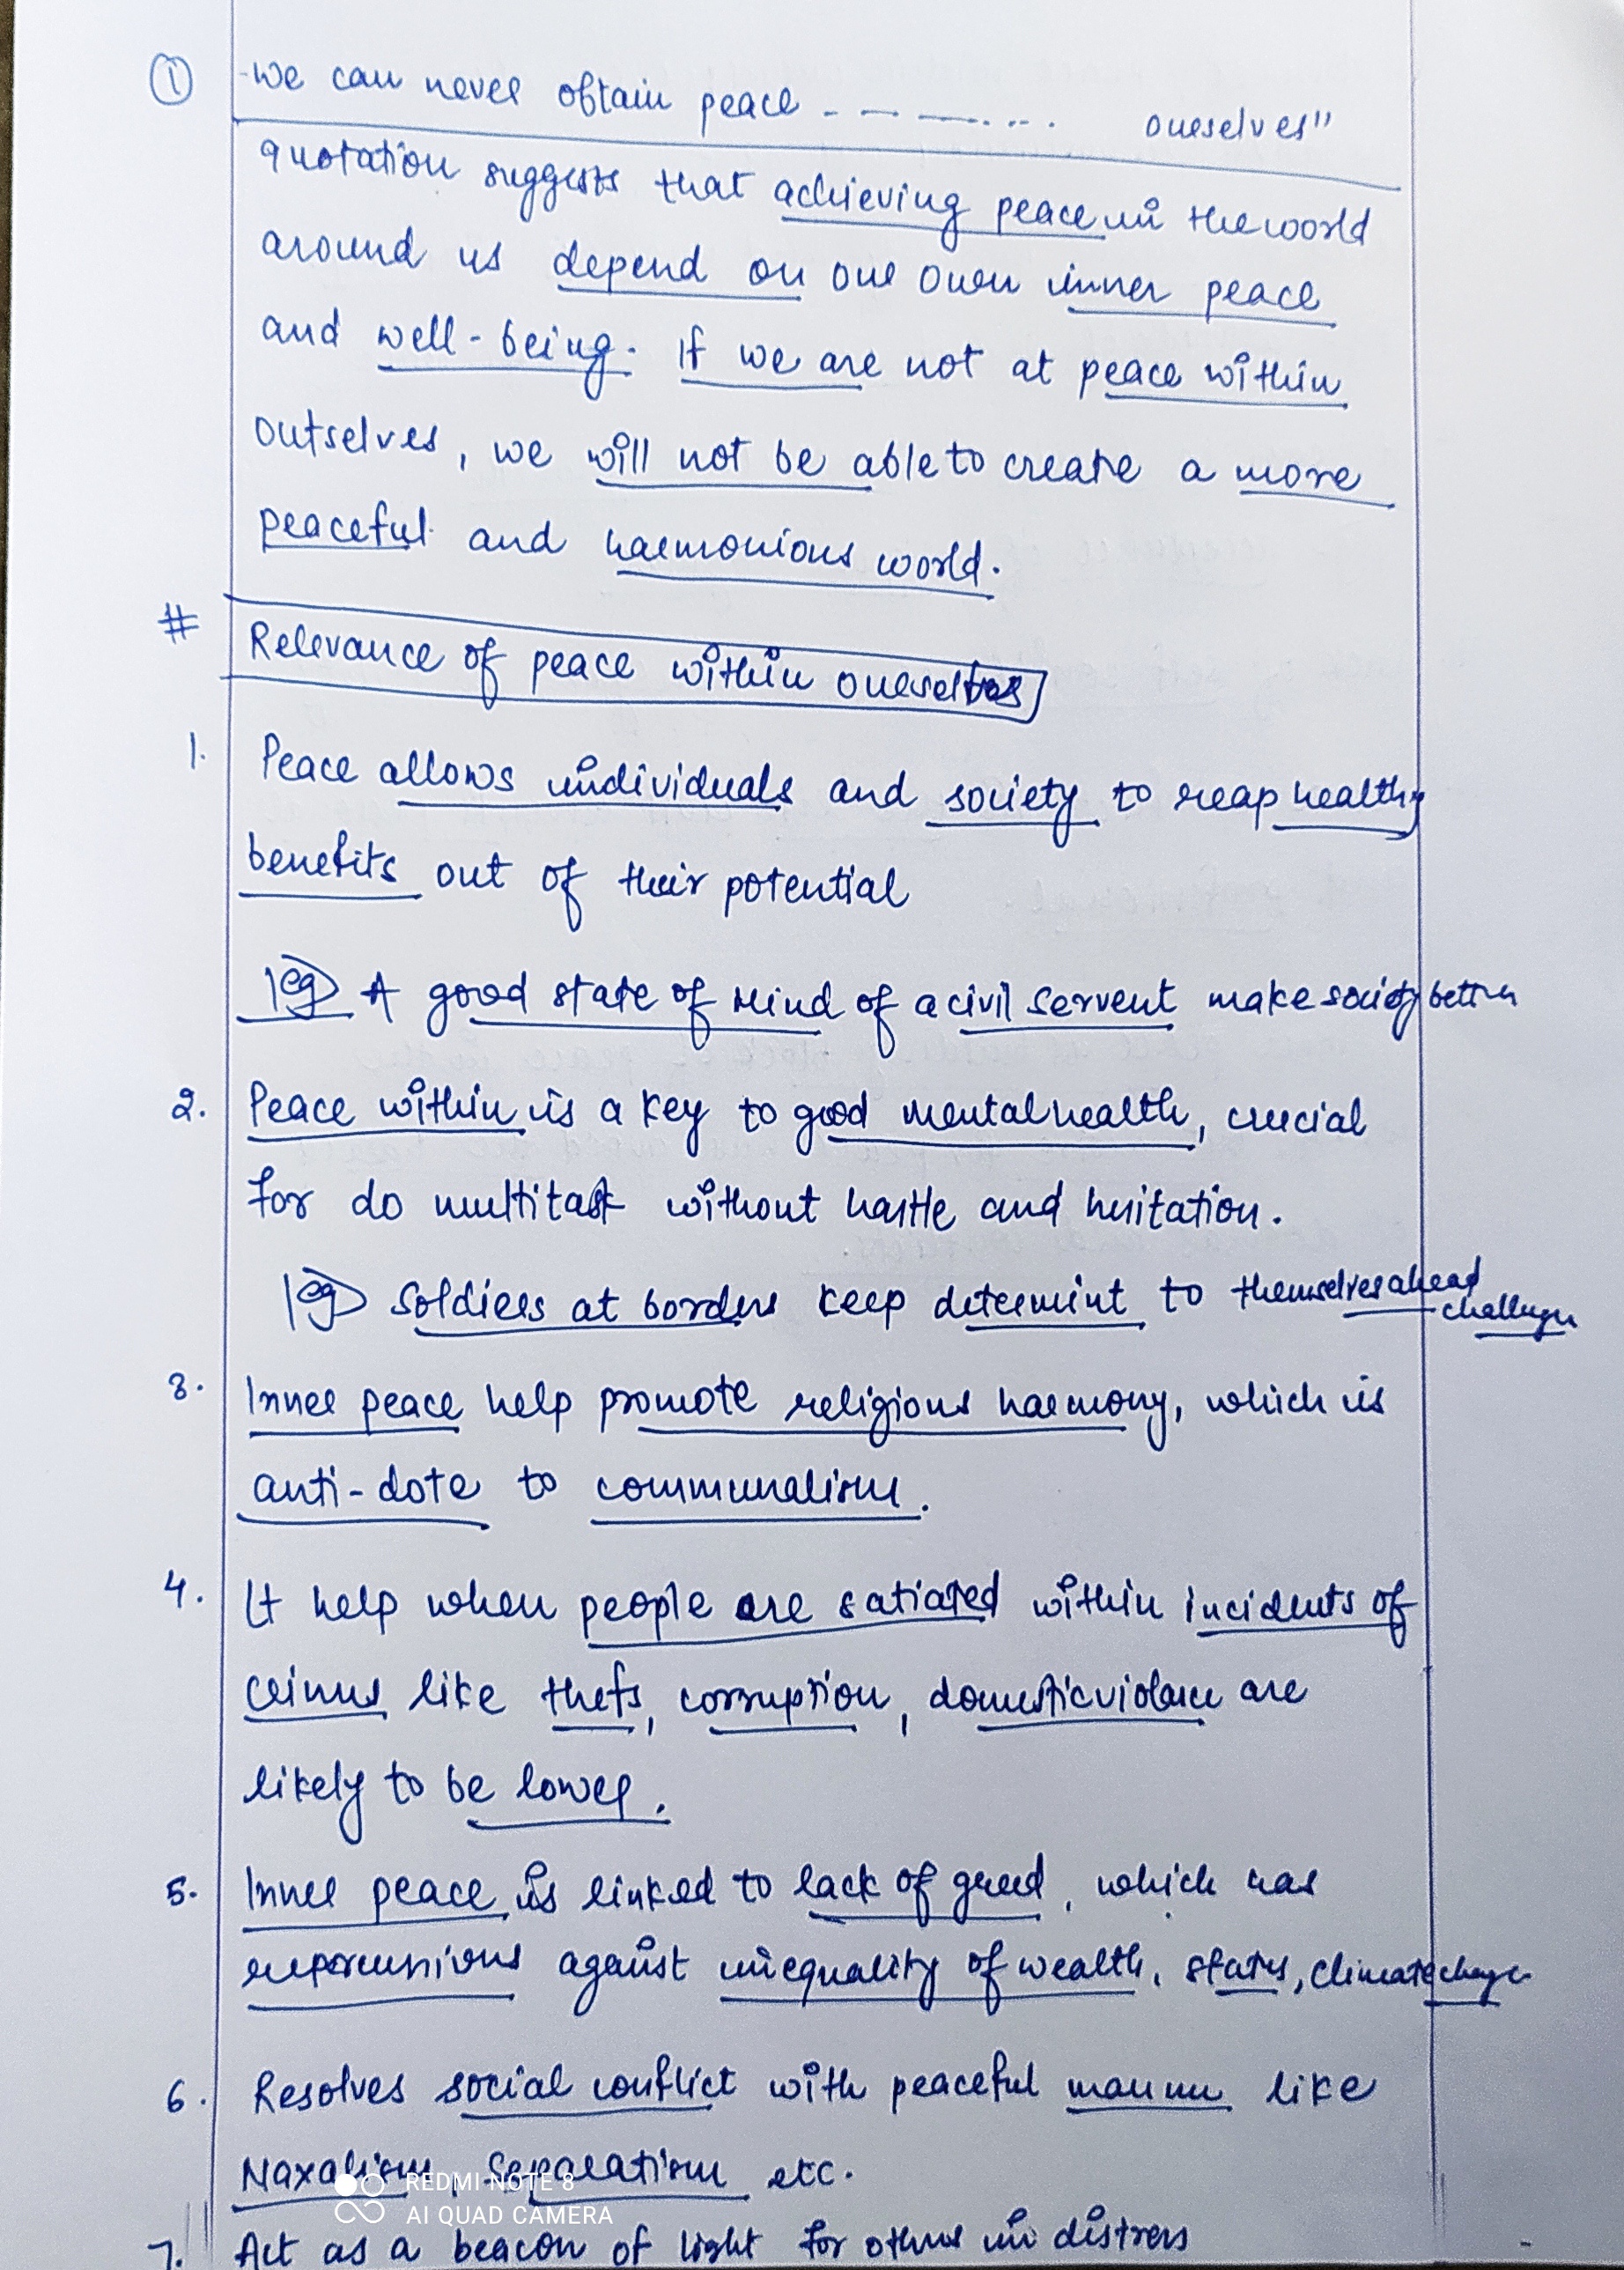 ① "we can never obtain peace - - - - - . . . ourselves"
quotation suggests that achieving peace in the world
around us depend on our own inner peace
and well-being. If we are not at peace within
outselves, we will not be able to create a more
peaceful and harmonious world.
# Relevance of peace within ourselves
1. Peace allows individuals and society to reap healthy
benefits out of their potential
eg A good state of mind of a civil servent make society better
2. Peace within is a key to good mental health, crucial
for do multitask without hastle and hesitation.
eg Soldiers at borders keep determint to themselves ahead
challenges
3. Inner peace help promote religious harmony, which is
anti-dote to communalism.
4. It help when people are satiated within incidents of
crimes like thefs, corruption, domestic violence are
likely to be lower.
5. Inner peace is linked to lack of greed, which has
repercussions against inequality of wealth, status, climate change
6. Resolves social conflict with peaceful manner like
Naxalism, Separatism etc.
REDMI NOTE 8
AI QUAD CAMERA
7. Act as a beacon of light for others in distress